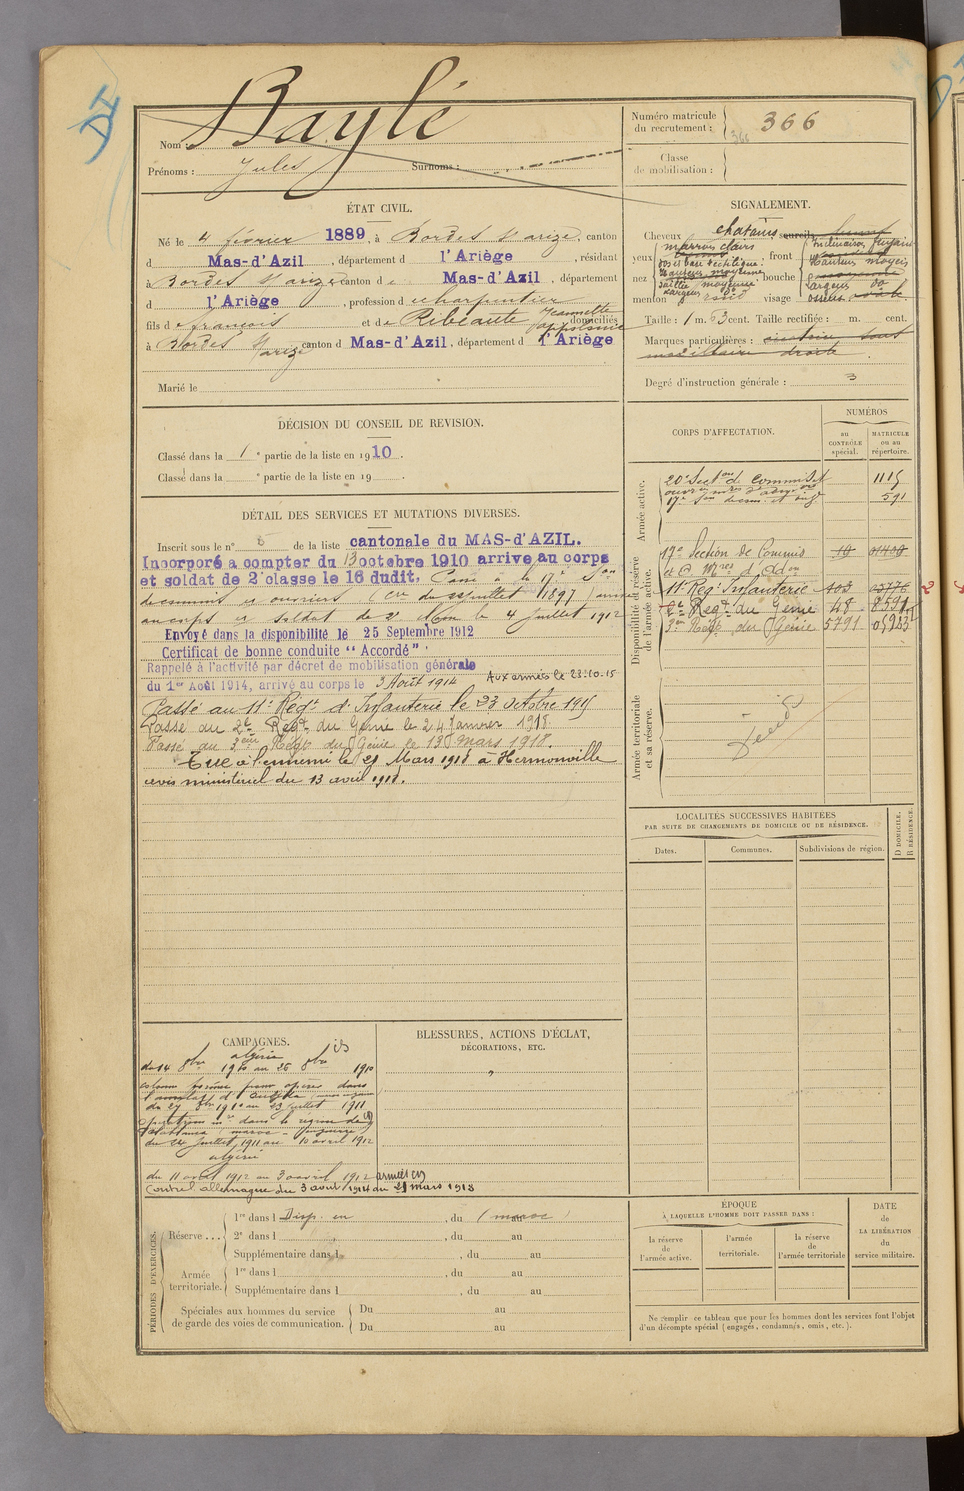 Nom : Baylé
Prénoms : Jules Surnoms :
Numéro matricule du recrutement : 366
Classe de mobilisation :
ÉTAT CIVIL.
Né le 4 février 1889, à Bordes s/ arize, canton
d Mas-d'Azil, département d l'Ariège, résidant
à Bordes s/ arize canton de Mas-d'Azil, département
d l'Ariège, profession d charpentier
fils de françois et de Ribeaute Jeannette domiciliés
à Bordes s/ arize canton d Mas-d'Azil, département d l'Ariège
Marié le
SIGNALEMENT.
Cheveux chatains, sourcils
yeux marron clairs front
nez bouche
menton rond visage
Taille : 1 m. 63 cent. Taille rectifiée : m. cent.
Marques particulières : cicatrice sous
maxillaire droite
Degré d'instruction générale : 3
DÉCISION DU CONSEIL DE REVISION.
Classé dans la 1e partie de la liste en 1910.
Classé dans la e partie de la liste en 19 .
DÉTAIL DES SERVICES ET MUTATIONS DIVERSES.
Inscrit sous le n° 6 de la liste cantonale du MAS-d'AZIL.
Incorporé a compter du 13 octobre 1910 arrive au corps
et soldat de 2e classe le 16 dudit. Passé à la 17e Son
de commis et ouvriers
au corps et soldat de 2e le 4 juillet 1912
Envoyé dans la disponibilité le 25 Septembre 1912
Certificat de bonne conduite "Accordé"
Rappelé à l'activité par décret de mobilisation générale
du 1er Août 1914, arrivé au corps le 3 Août 1914 Aux armées le 23-10-15
Passé au 11e Régt d'Infanterie le 23 octobre 1915
Passé au 2e Régt du Génie le 24 Janvier 1918.
Passé au 3eme Régt du Génie le 13 mars 1918.
Tué à l'ennemi le 21 Mars 1918 à Hermonville
avis ministériel du 13 avril 1918.
CORPS D'AFFECTATION.
NUMÉROS
au CONTRÔLE spécial.
MATRICULE ou au répertoire.
Armée active.
20e Sect on de Commis et 1115
591
Disponibilité et réserve de l'armée active.
17e Section de Commis 19 01400
et O Mres d'Adon
11e Rég. Infanterie 403
2e Régt du Génie 48
3e Régt du Génie 5791
Armée territoriale et sa réserve.
LOCALITÉS SUCCESSIVES HABITÉES
PAR SUITE DE CHANGEMENTS DE DOMICILE OU DE RÉSIDENCE.
Dates.
Communes.
Subdivisions de région.
D DOMICILE.
R RÉSIDENCE.
CAMPAGNES.
algérie
du 14 8bre 1910 au 26 8bre 1910
du 27 8bre 1910 au 23 juillet 1911
du 24 Juillet 1911 au 10 avril 1912
algérie
du 11 avril 1912 au 3 avril 1912
Contre l'allemagne du 3 aout 1914 au 21 mars 1918
BLESSURES, ACTIONS D'ÉCLAT,
DÉCORATIONS, ETC.
PÉRIODES D'EXERCICES.
Réserve ...
1re dans l Disp. en , du (maroc) au
2e dans l , du au
Supplémentaire dans l , du au
Armée territoriale.
1re dans l , du au
Supplémentaire dans l , du au
Spéciales aux hommes du service
de garde des voies de communication.
Du au
Du au
ÉPOQUE
À LAQUELLE L'HOMME DOIT PASSER DANS :
la réserve de l'armée active.
l'armée territoriale.
la réserve de l'armée territoriale
DATE de LA LIBÉRATION du service militaire.
Ne remplir ce tableau que pour les hommes dont les services font l'objet
d'un décompte spécial (engagés, condamnés, omis, etc.).